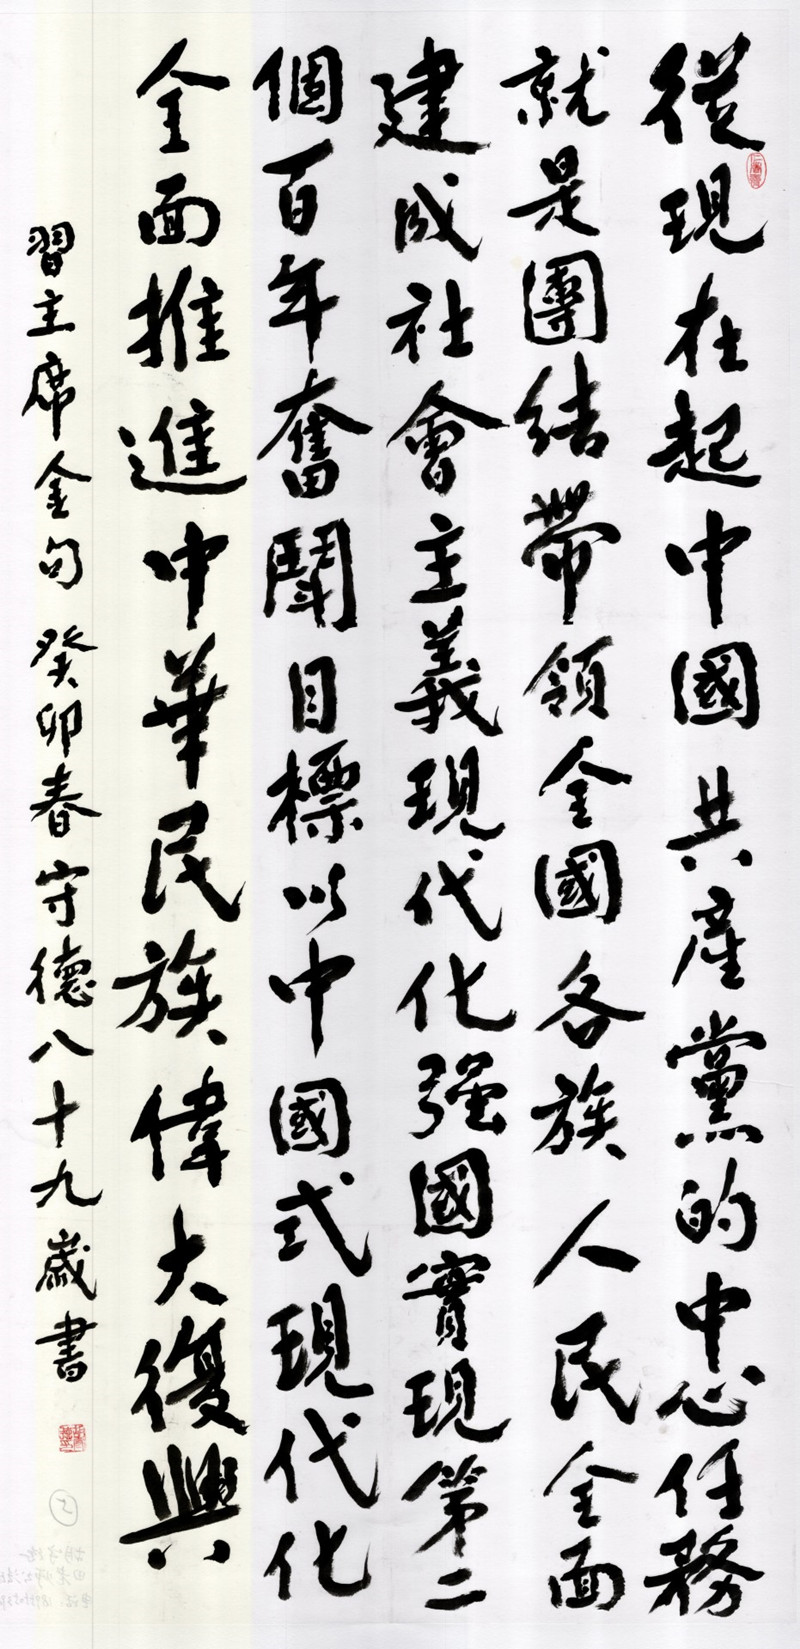 從現在起中國共產黨的中心任務
就是團結帶領全國各族人民全面
建成社會主義現代化强國實現第二
個百年奮鬪目標以中國式現代化
全面推進中華民族偉大復興
習主席金句 癸卯春守德八十九歲書